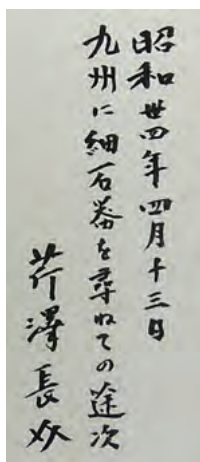 昭和卅四年四月十三日
九州に細石器を尋ねての途次
芹澤長介